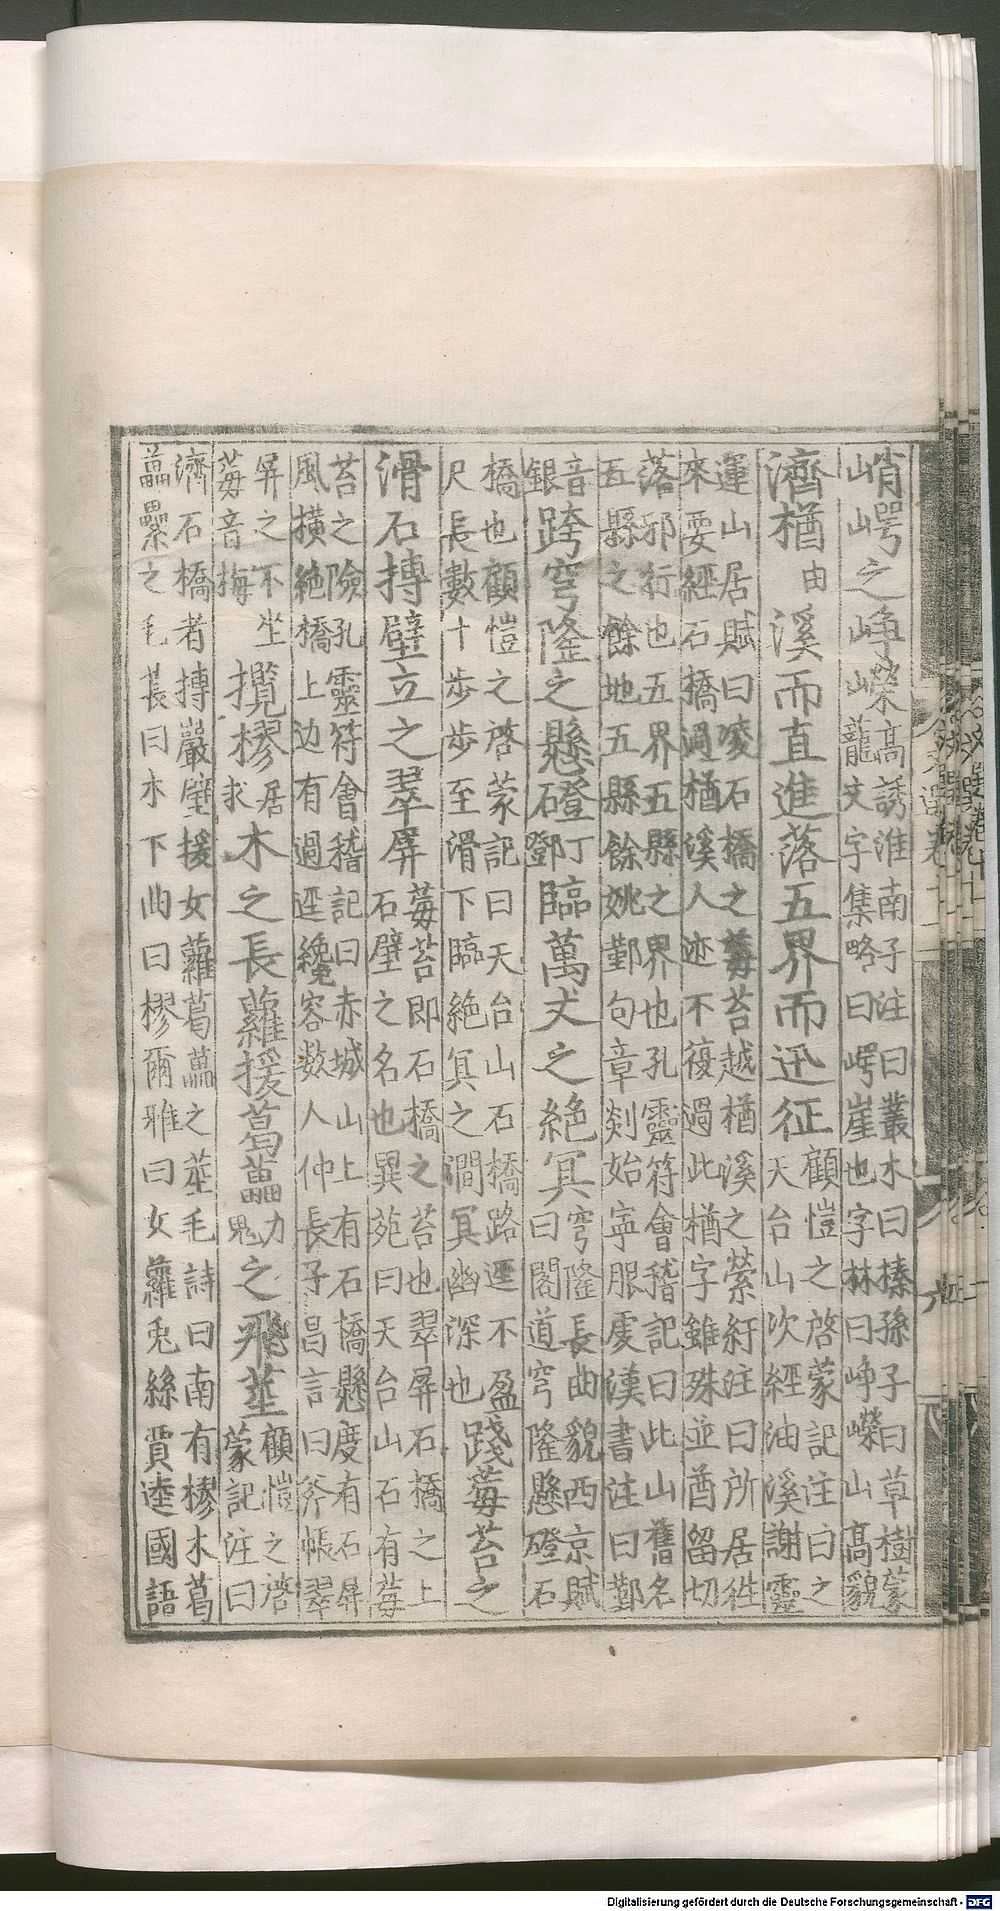 峭崿之崢嶸高誘淮南子注曰叢木曰榛孫子曰草樹蒙
蘢文字集略曰崿崖也字林曰崢嶸山高貌
濟楢由溪而直進落五界而迅征顧愷之啓蒙記注曰之
天台山次經油溪謝靈
運山居賦曰凌石橋之莓苔越楢溪之縈紆注曰所居往
來要經石橋過楢溪人迹不復過此楢字雖殊並酋留切
落邪行也五界五縣之界也孔靈符會稽記曰此山舊名
五縣之餘地五縣餘姚鄞句章剡始寧服虔漢書注曰鄞
音銀跨穹隆之懸磴丁鄧臨萬丈之絕冥穹隆長曲貌西京賦
曰閣道穹隆懸磴石
橋也顧愷之啓蒙記曰天台山石橋路逕不盈
尺長數十步步至滑下臨絕冥之澗冥幽深也踐莓苔之
滑石搏壁立之翠屏莓苔即石橋之苔也翠屏石橋之上
石壁之名也異苑曰天台山石有莓
苔之險孔靈符會稽記曰赤城山上有石橋懸度有石屏
風橫絶橋上边有過逕纔容数人仲長子昌言曰斧帳翠
屏之不坐
莓音梅攬樛居求木之長蘿援葛藟力鬼之飛莖顧愷之啓
蒙記注曰
濟石橋者搏巖壁援女蘿葛藟之莖毛詩曰南有樛木葛
藟纍之毛萇曰木下曲曰樛爾雅曰女蘿兎絲賈逵國語
Digitalisierung gefördert durch die Deutsche Forschungsgemeinschaft - DFG